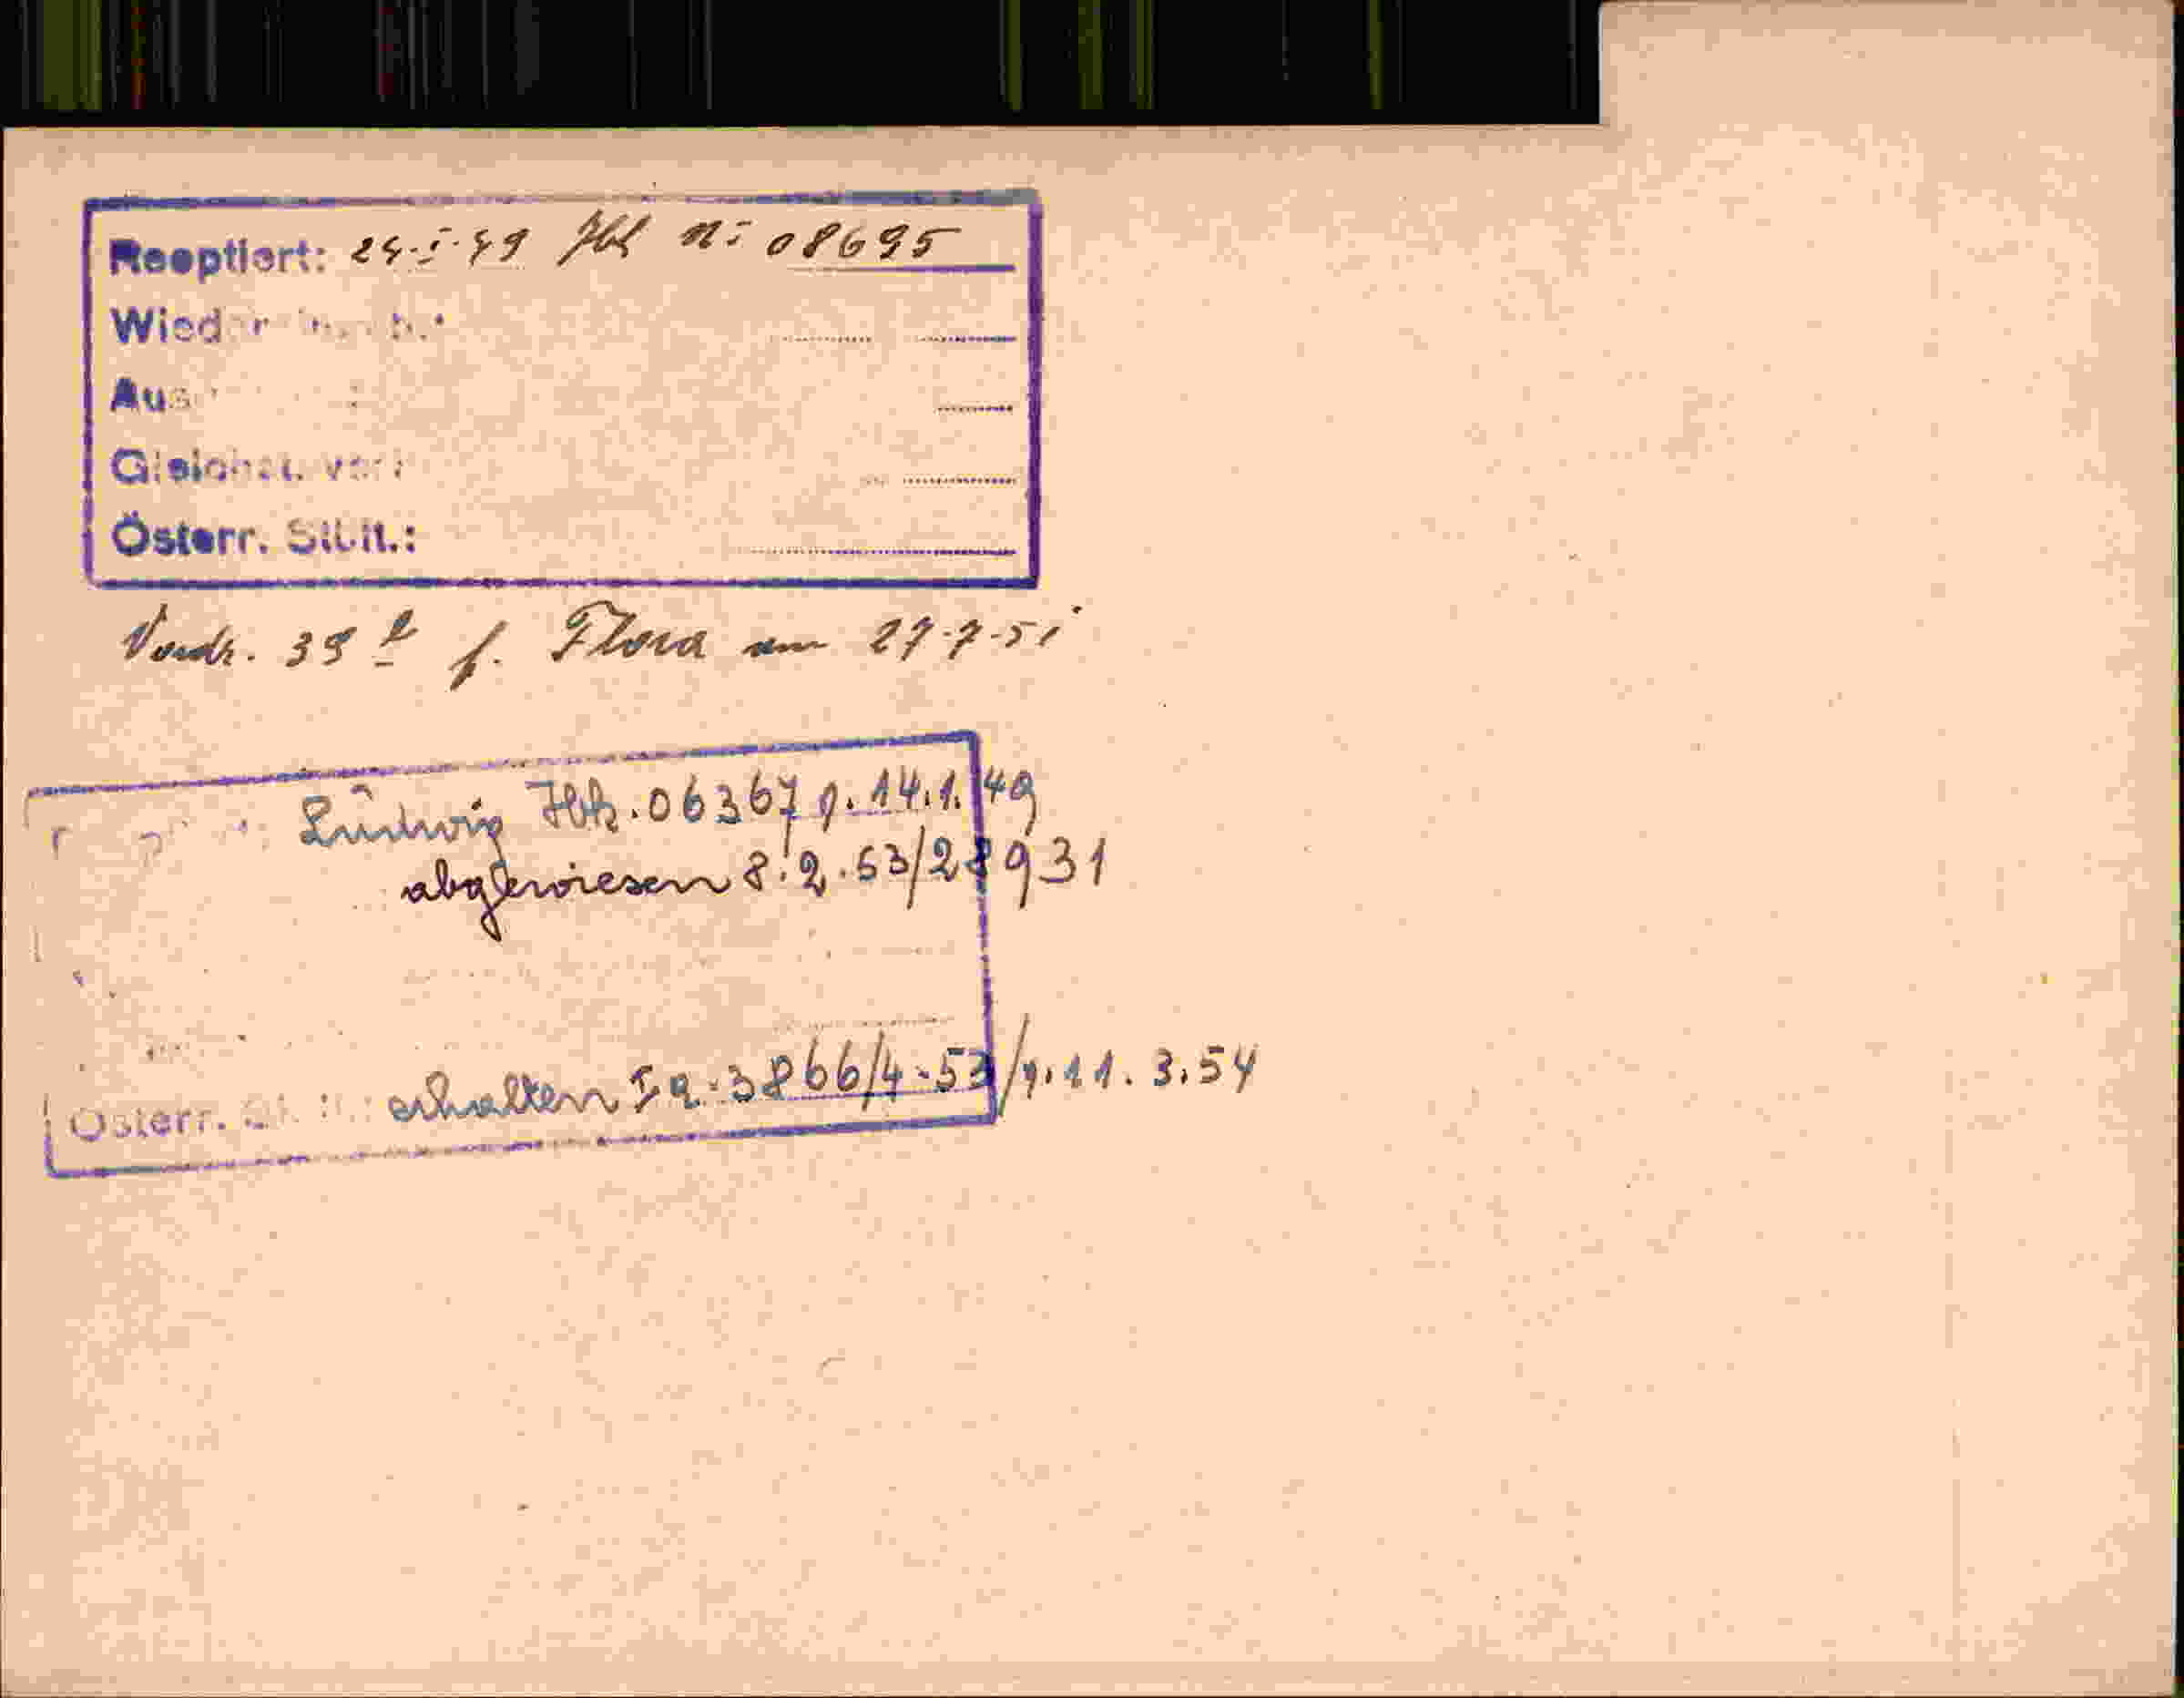 Reoptiert: 24.I.49 Hbl Nr 08695
Wieder
Aus
Gleichst. ver
Österr. Stbü.:
Vordr. 39 b f. Flora am 27.7.51
Ludwig Hbl. 06367 v. 14.1.49
abgewiesen 8.2.53/28931
Österr. erhalten I a-3866/4-53/v. 11.3.54